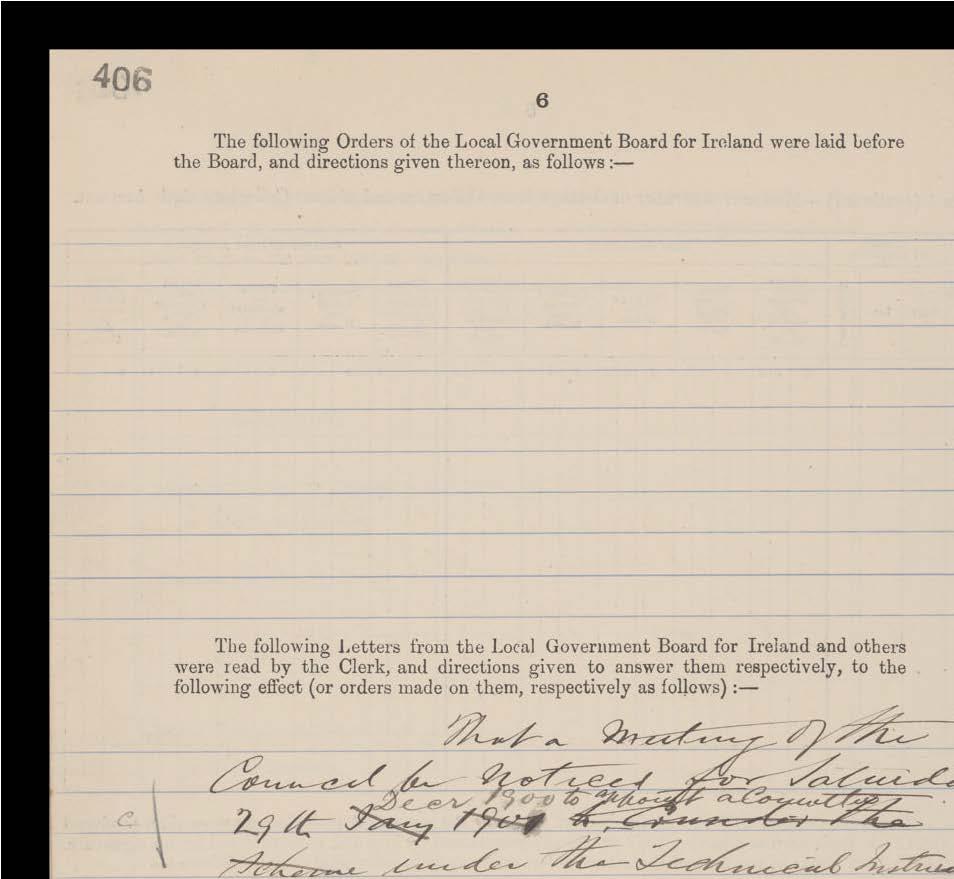 406
6
The following Orders of the Local Government Board for Ireland were laid before
the Board, and directions given thereon, as follows :—
The following Letters from the Local Government Board for Ireland and others
were read by the Clerk, and directions given to answer them respectively, to the
following effect (or orders made on them, respectively as follows) :—
That a Meeting of the
Council be Noticed for Saturda
Decr 1900 to appoint a Committee
C 29th Jany 1901 to Consider the
Scheme under the Technical Instruc